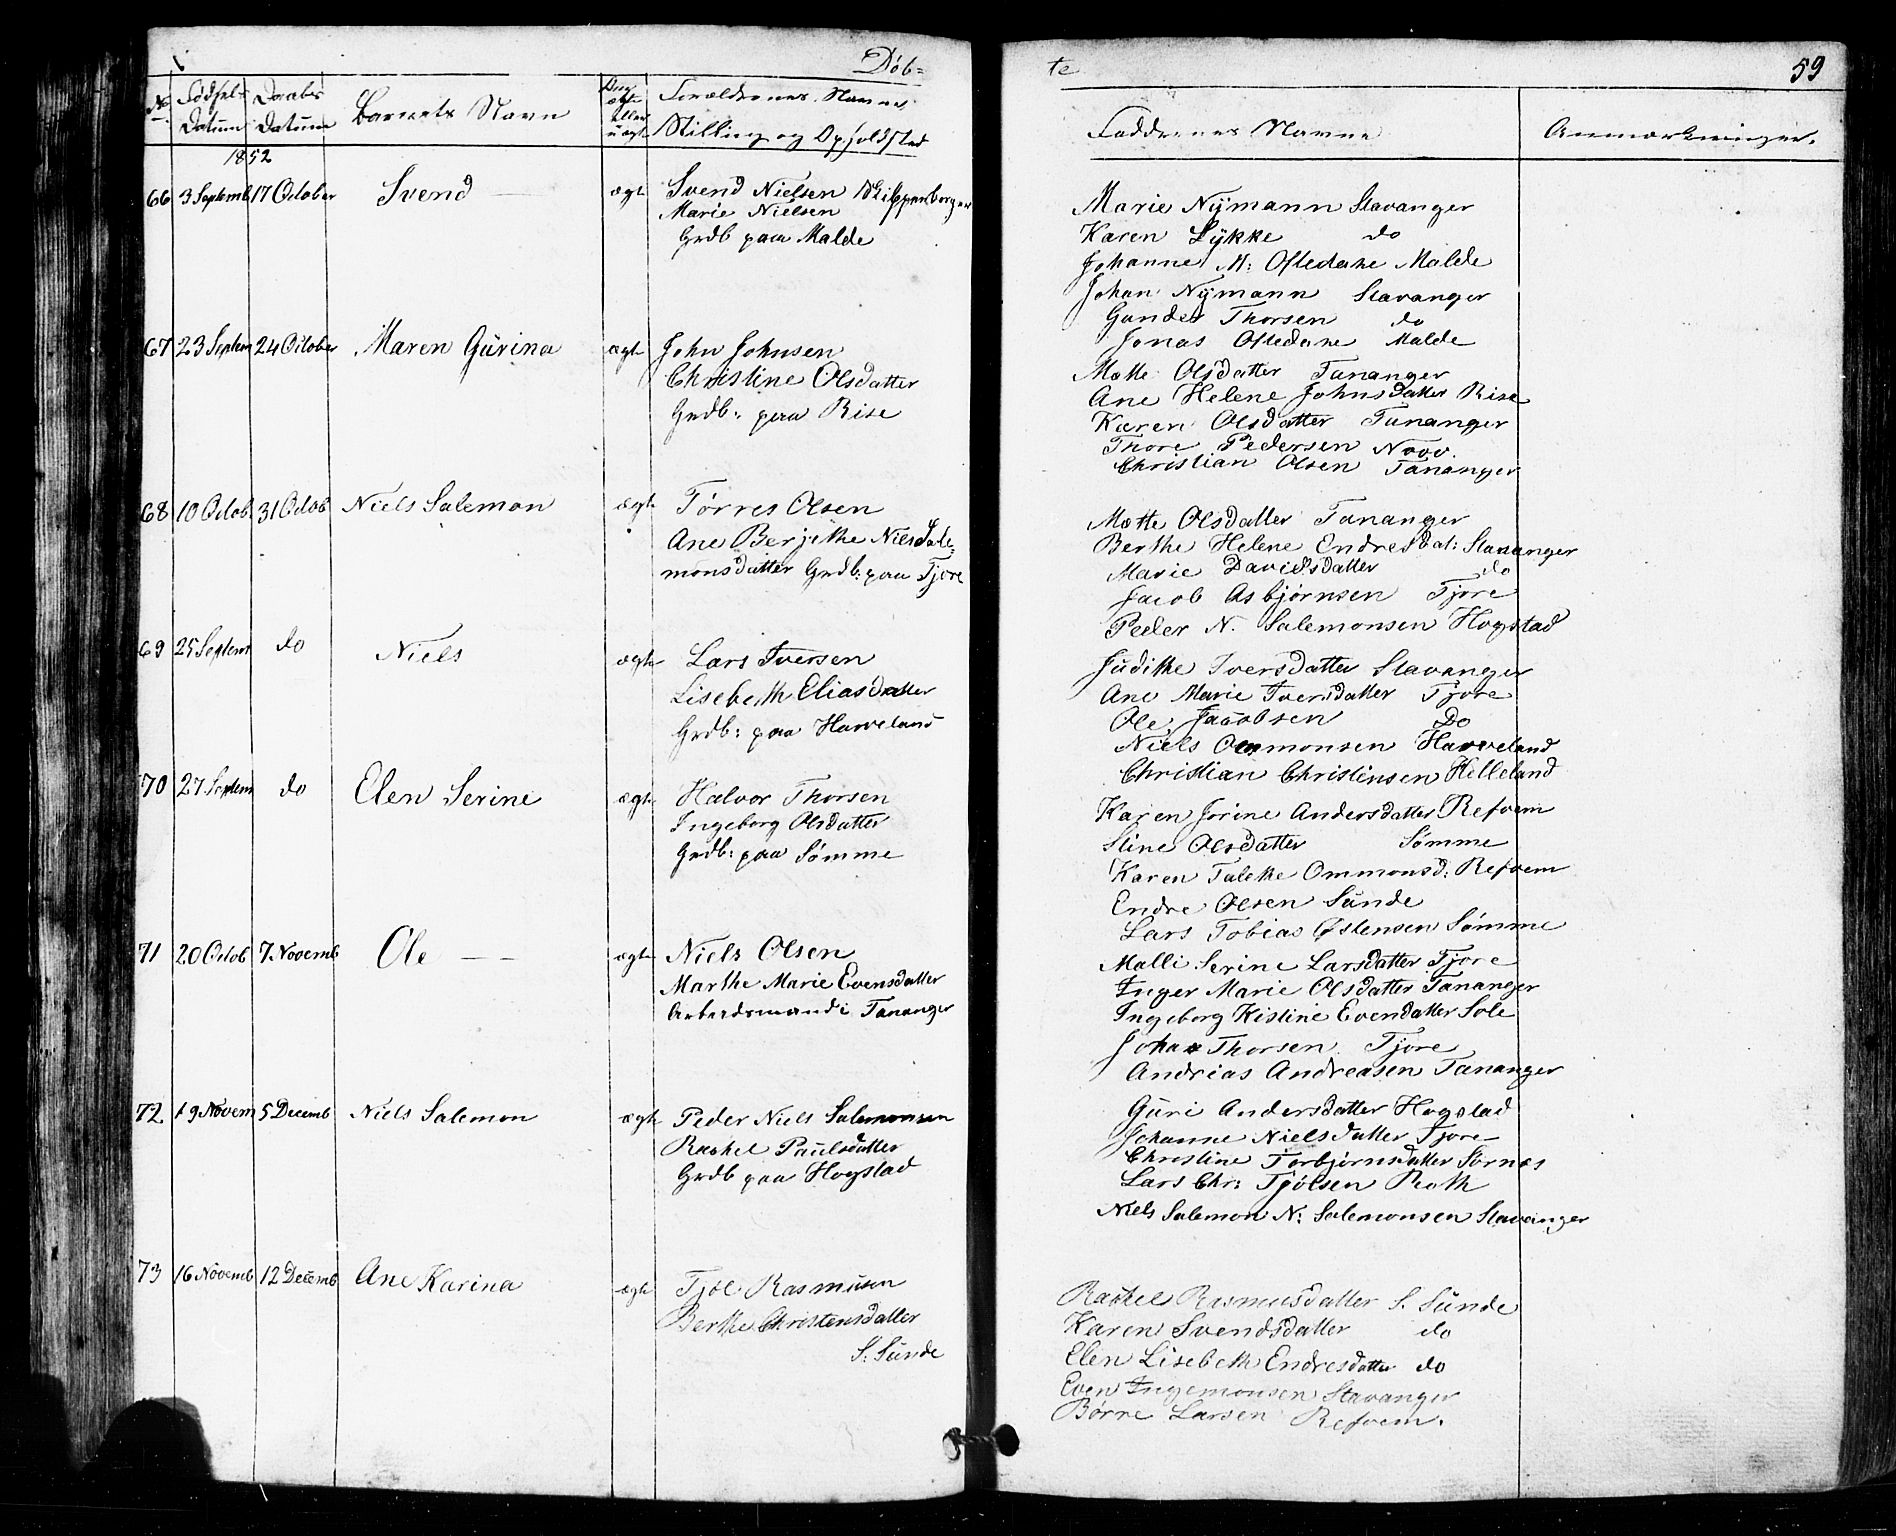 Døb=
No
Fødsels Datum
Daabs Datum
Barnets Navn
Om ægte eller uægt
Forældrenes Navne
Stilling og Opholdsted
1852
66 3 Septemb 17 October Svend ægte Svend Nielsen
Marie Nielsen
Grdb paa Malde
67 23 Septem 24 October Maren Gurina ægte John Johnsen
Christine Olsdatter
Grdb: paa Rise
68 10 Octob 31 Octob Niels Salemon ægte Tørres Olsen
Ane Berjithe Niels Sale=
monsdatter Grdb: paa Tjore
69 25 Septem do Niels ægte Lars Iversen
Lisebeth Eliasdatter
Grdb: paa Harveland
70 27 Septem do Elen Serine ægte Halvor Thorsen
Ingeborg Olsdatter
Grdb: paa Sømme
71 20 Octob 7 Novemb Ole ægte Niels Olsen
Marthe Marie Evensdatter
Arbeidsmand i Tananger
72 19 Novem 5 Decemb Niels Salemon ægte Peder Niels Salemonsen
Rachel Paulsdatter
Grdb paa Hogstad
73 16 Novemb 12 Decemb Ane Karina ægte Tjøl Rasmusen
Berthe Christensdatter
S: Sunde
te 59
Faddernes Navne
Anmærkninger.
Marie Nymann Stavanger
Karen Lykke do
Johanne M: Oftedahe Malde
Johan Nymann Stavanger
Gunder Thorsen do
Jonas Oftedahe Malde
Mette Olsdatter Tananger
Ane Helene Johnsdatter Rise
Karen Olsdatter Tananger
Thore Pedersen
Christian Olsen Tananger
Mette Olsdatter Tananger
Berthe Helene Endresdat: Stavanger
Marie Davidsdatter do
Jacob Asbjørnsen Tjore
Peder N. Salemonsen Hogstad
Judithe Iversdatter Stavanger
Ane Marie Iversdatter Tjore
Ole Jacobsen Do
Niels Ommonsen Harveland
Christian Christinsen Helleland
Karen Jorine Andersdatter Refvem
Stine Olsdatter Sømme
Karen Talethe Ommonsd: Refvem
Endre Olsen Sunde
Lars Tobias Østensen Sømme
Malli Serine Larsdatter Tjore
Inger Marie Olsdatter Tananger
Ingeborg Kistine Evendatter Sole
Johan Thorsen Tjore
Andrias Andreasen Tananger
Guri Andersdatter Hogstad
Johanne Nielsdatter Tjore
Christine Torbjørnsdatter Stornæs
Lars Chr: Tjølsen Røth
Niels Salemon N: Salemonsen Stavanger
Rachel Rasmusdatter S. Sunde
Karen Svendsdatter do
Elen Lisebeth Endresdatter do
Even Ingemonsen Stavanger
Børre Larsen Refvem.